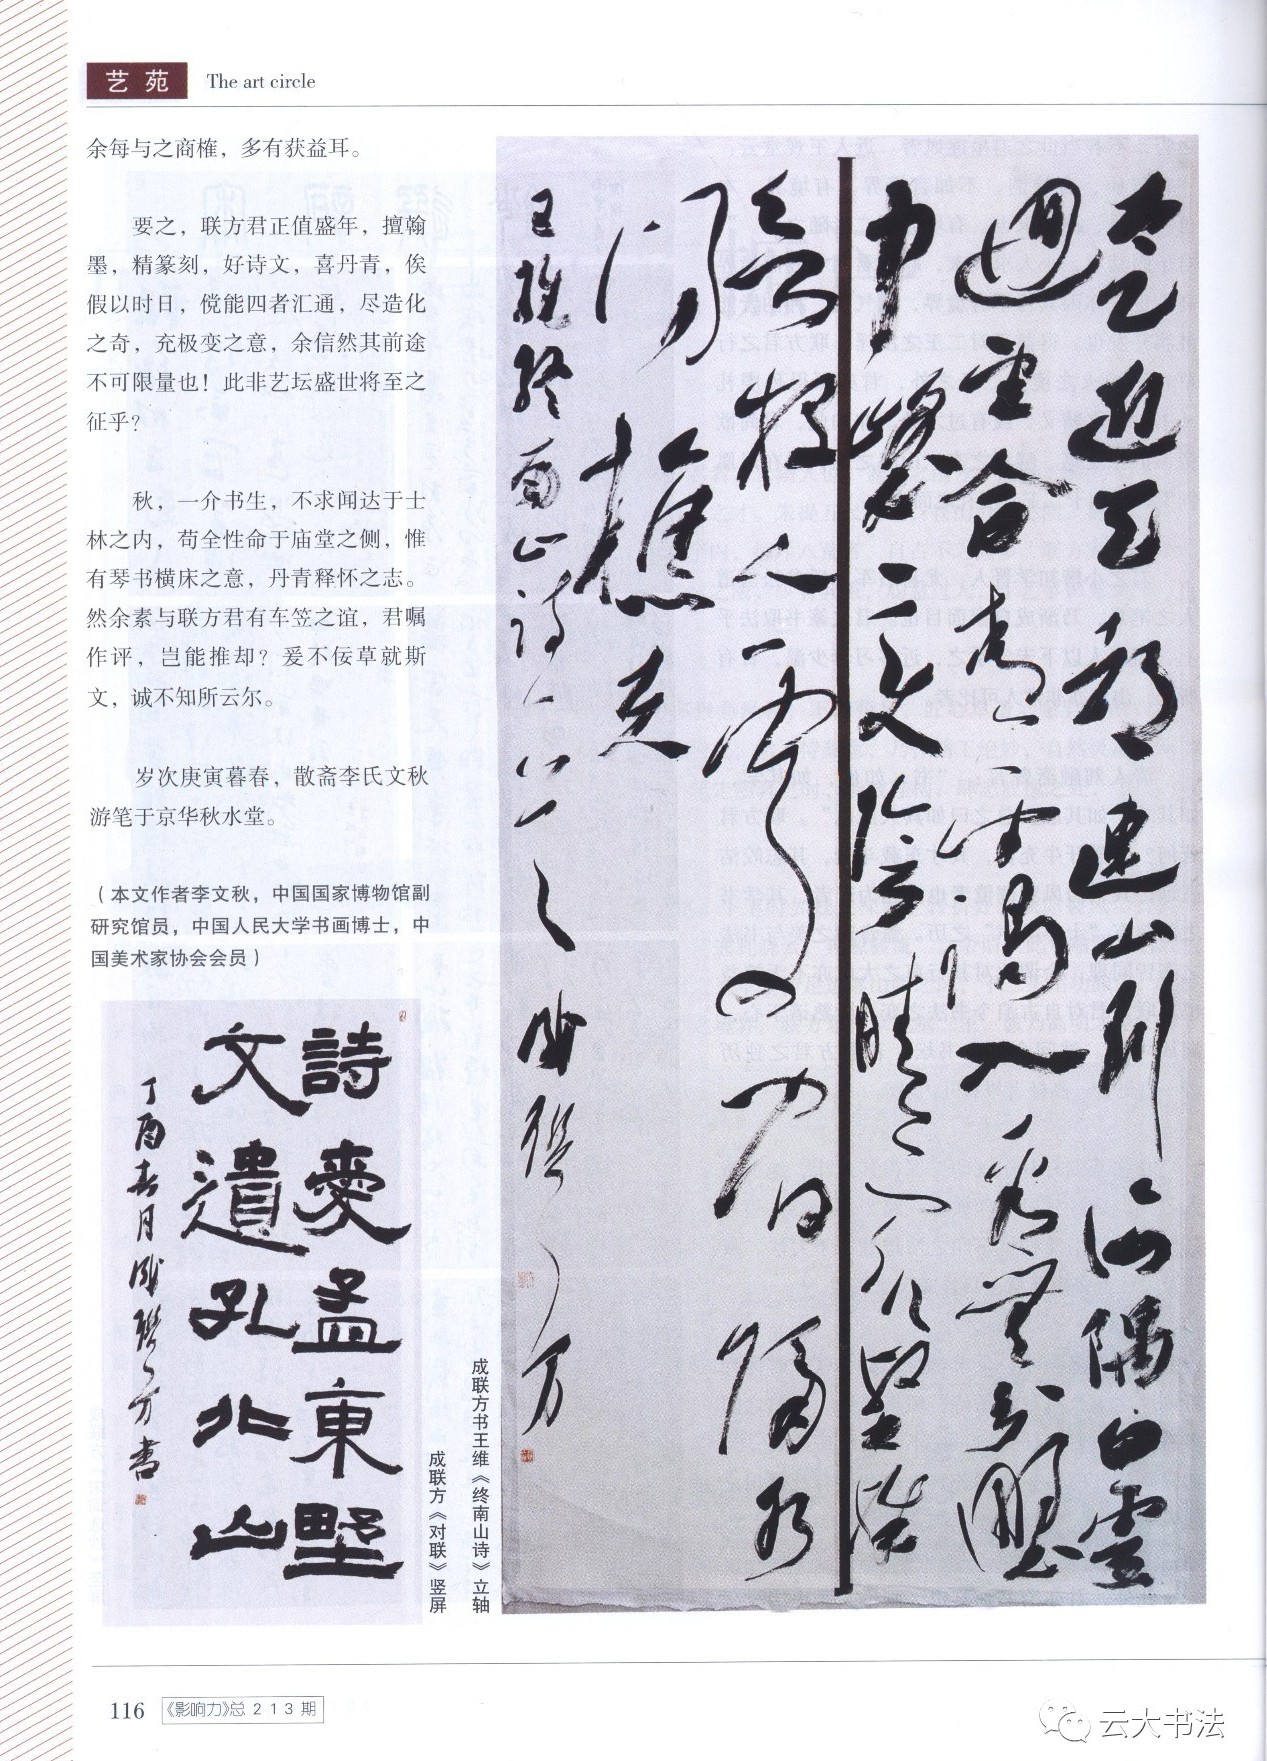 艺苑
The art circle
余每与之商榷，多有获益耳。
要之，联方君正值盛年，擅翰
墨，精篆刻，好诗文，喜丹青，俟
假以时日，傥能四者汇通，尽造化
之奇，充极变之意，余信然其前途
不可限量也！此非艺坛盛世将至之
征乎？
秋，一介书生，不求闻达于士
林之内，苟全性命于庙堂之侧，惟
有琴书横床之意，丹青释怀之志。
然余素与联方君有车笠之谊，君嘱
作评，岂能推却？爰不佞草就斯
文，诚不知所云尔。
岁次庚寅暮春，散斋李氏文秋
游笔于京华秋水堂。
（本文作者李文秋，中国国家博物馆副
研究馆员，中国人民大学书画博士，中
国美术家协会会员）
太乙近天都連山到海隅白雲
迴望合青靄入看無分墅
中峰變陰晴衆壑殊
欲投人處宿隔水
問樵夫
王維終南山詩 成聯方
成联方书王维《终南山诗》立轴
詩愛孟東墅
文遺孔北山
丁酉春月成聯方書
成联方《对联》竖屏
116
《影响力》总213期
云大书法